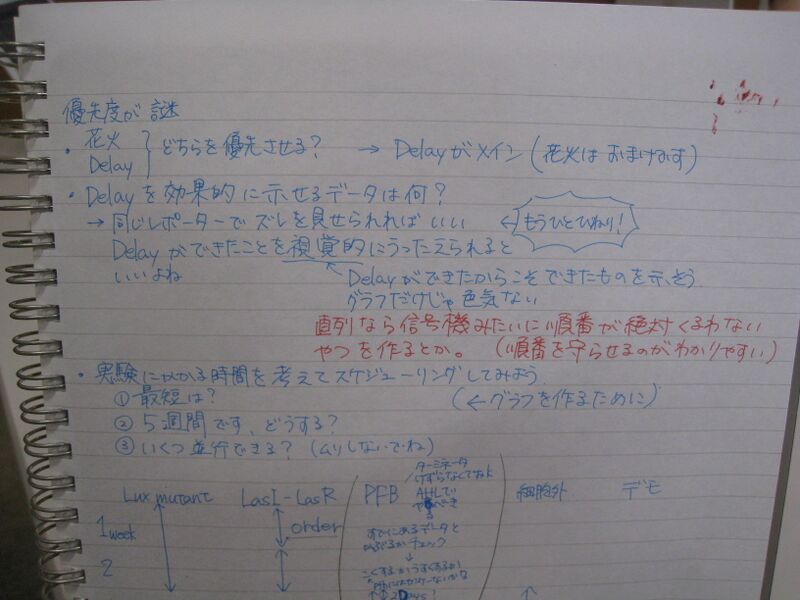 優先度が謎
・花火
Delay
どちらを優先させる? → Delayがメイン(花火はおまけかす)
・Delayを効果的に示せるデータは何?
→ 同じレポーターでズレを見せられればいい ← もうひとひねり!
Delayができたことを視覚的にうったえられると
いいよね
Delayができたからこそできたものを示そう
グラフだけじゃ色気ない
直列なら信号機みたいに順番が絶対くるわない
やつを作るとか。(順番を守らせるのがわかりやすい)
・実験にかかる時間を考えてスケジューリングしてみよう
① 最短は? (←グラフを作るために)
② 5週間です、どうする?
③ いくつ並行できる?(ムリしないでね)
Lux mutant LasI-LasR PFB 細胞外 デモ
ターミネータ
けずらなくてねよ
AHLで
1 week order
すでにあるデータと
かぶるかチェック
↓
2
こくするかうすくするか?